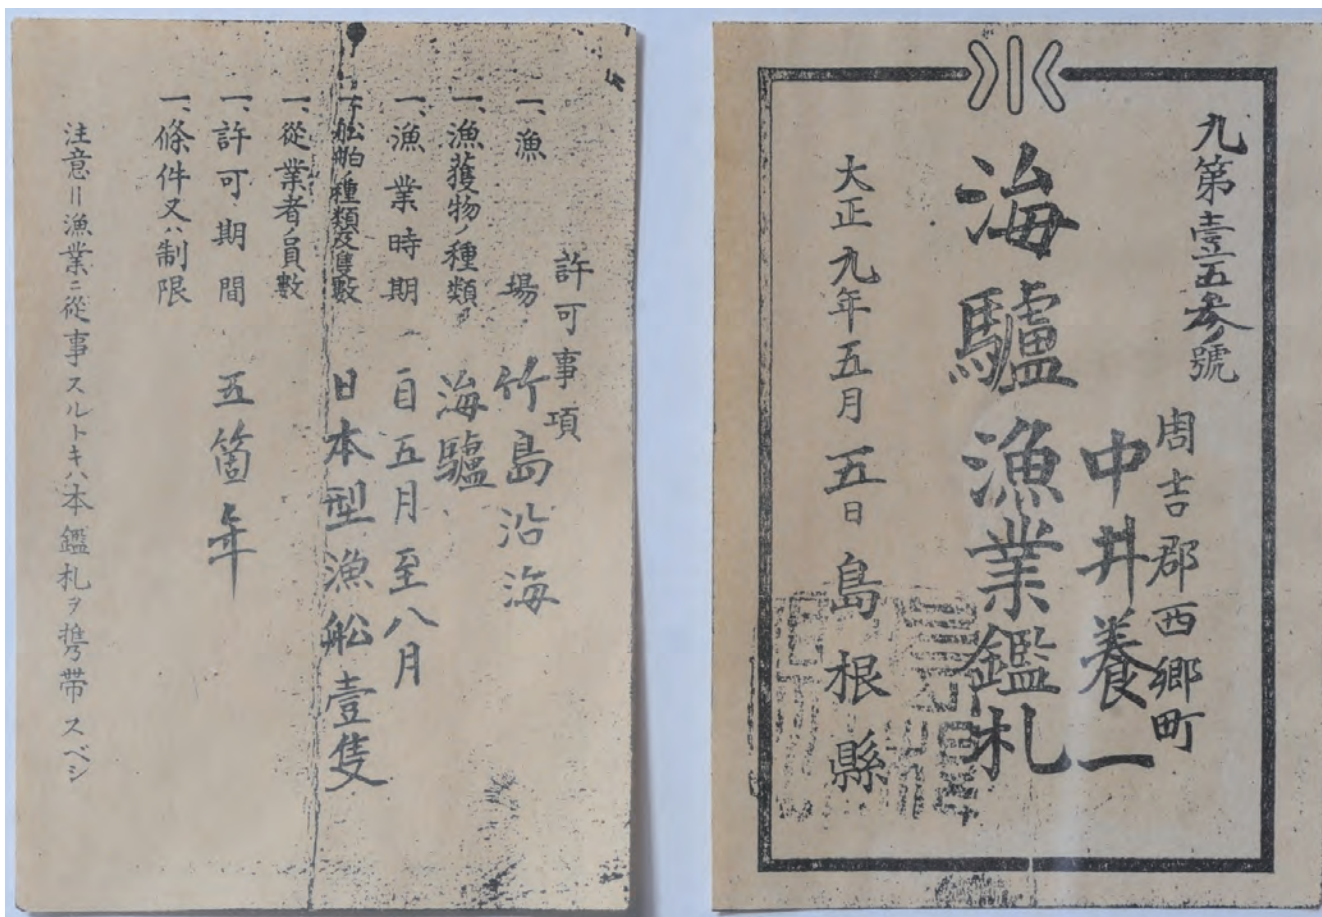 九第壹五参號
周吉郡西郷町
中井養一
海驢漁業鑑札
大正九年五月五日島根縣
許可事項
一、漁場 竹島沿海
一、漁獲物ノ種類 海驢
一、漁業時期 自五月至八月
一、舩舶ノ種類及隻數 日本型漁舩壹隻
一、從業者ノ員數
一、許可期間 五箇年
一、條件又ハ制限
注意＝漁業ニ從事スルトキハ本鑑札ヲ携帯スベシ